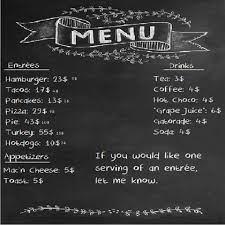 MENU
Entrées
Hamburger: 23$
Tacos: 17$
Pancakes: 13$
Pizza: 29$
Pie: 43$
Turkey: 55$
Hotdogs: 10$
Appetizers
Mac'n Cheese: 5$
Toast: 5$
Drinks
Tea: 3$
Coffee: 4$
Hot Choco: 4$
"Grape Juice": 6$
Gatorade: 4$
Soda: 4$
If you would like one
serving of an entrée,
let me know.